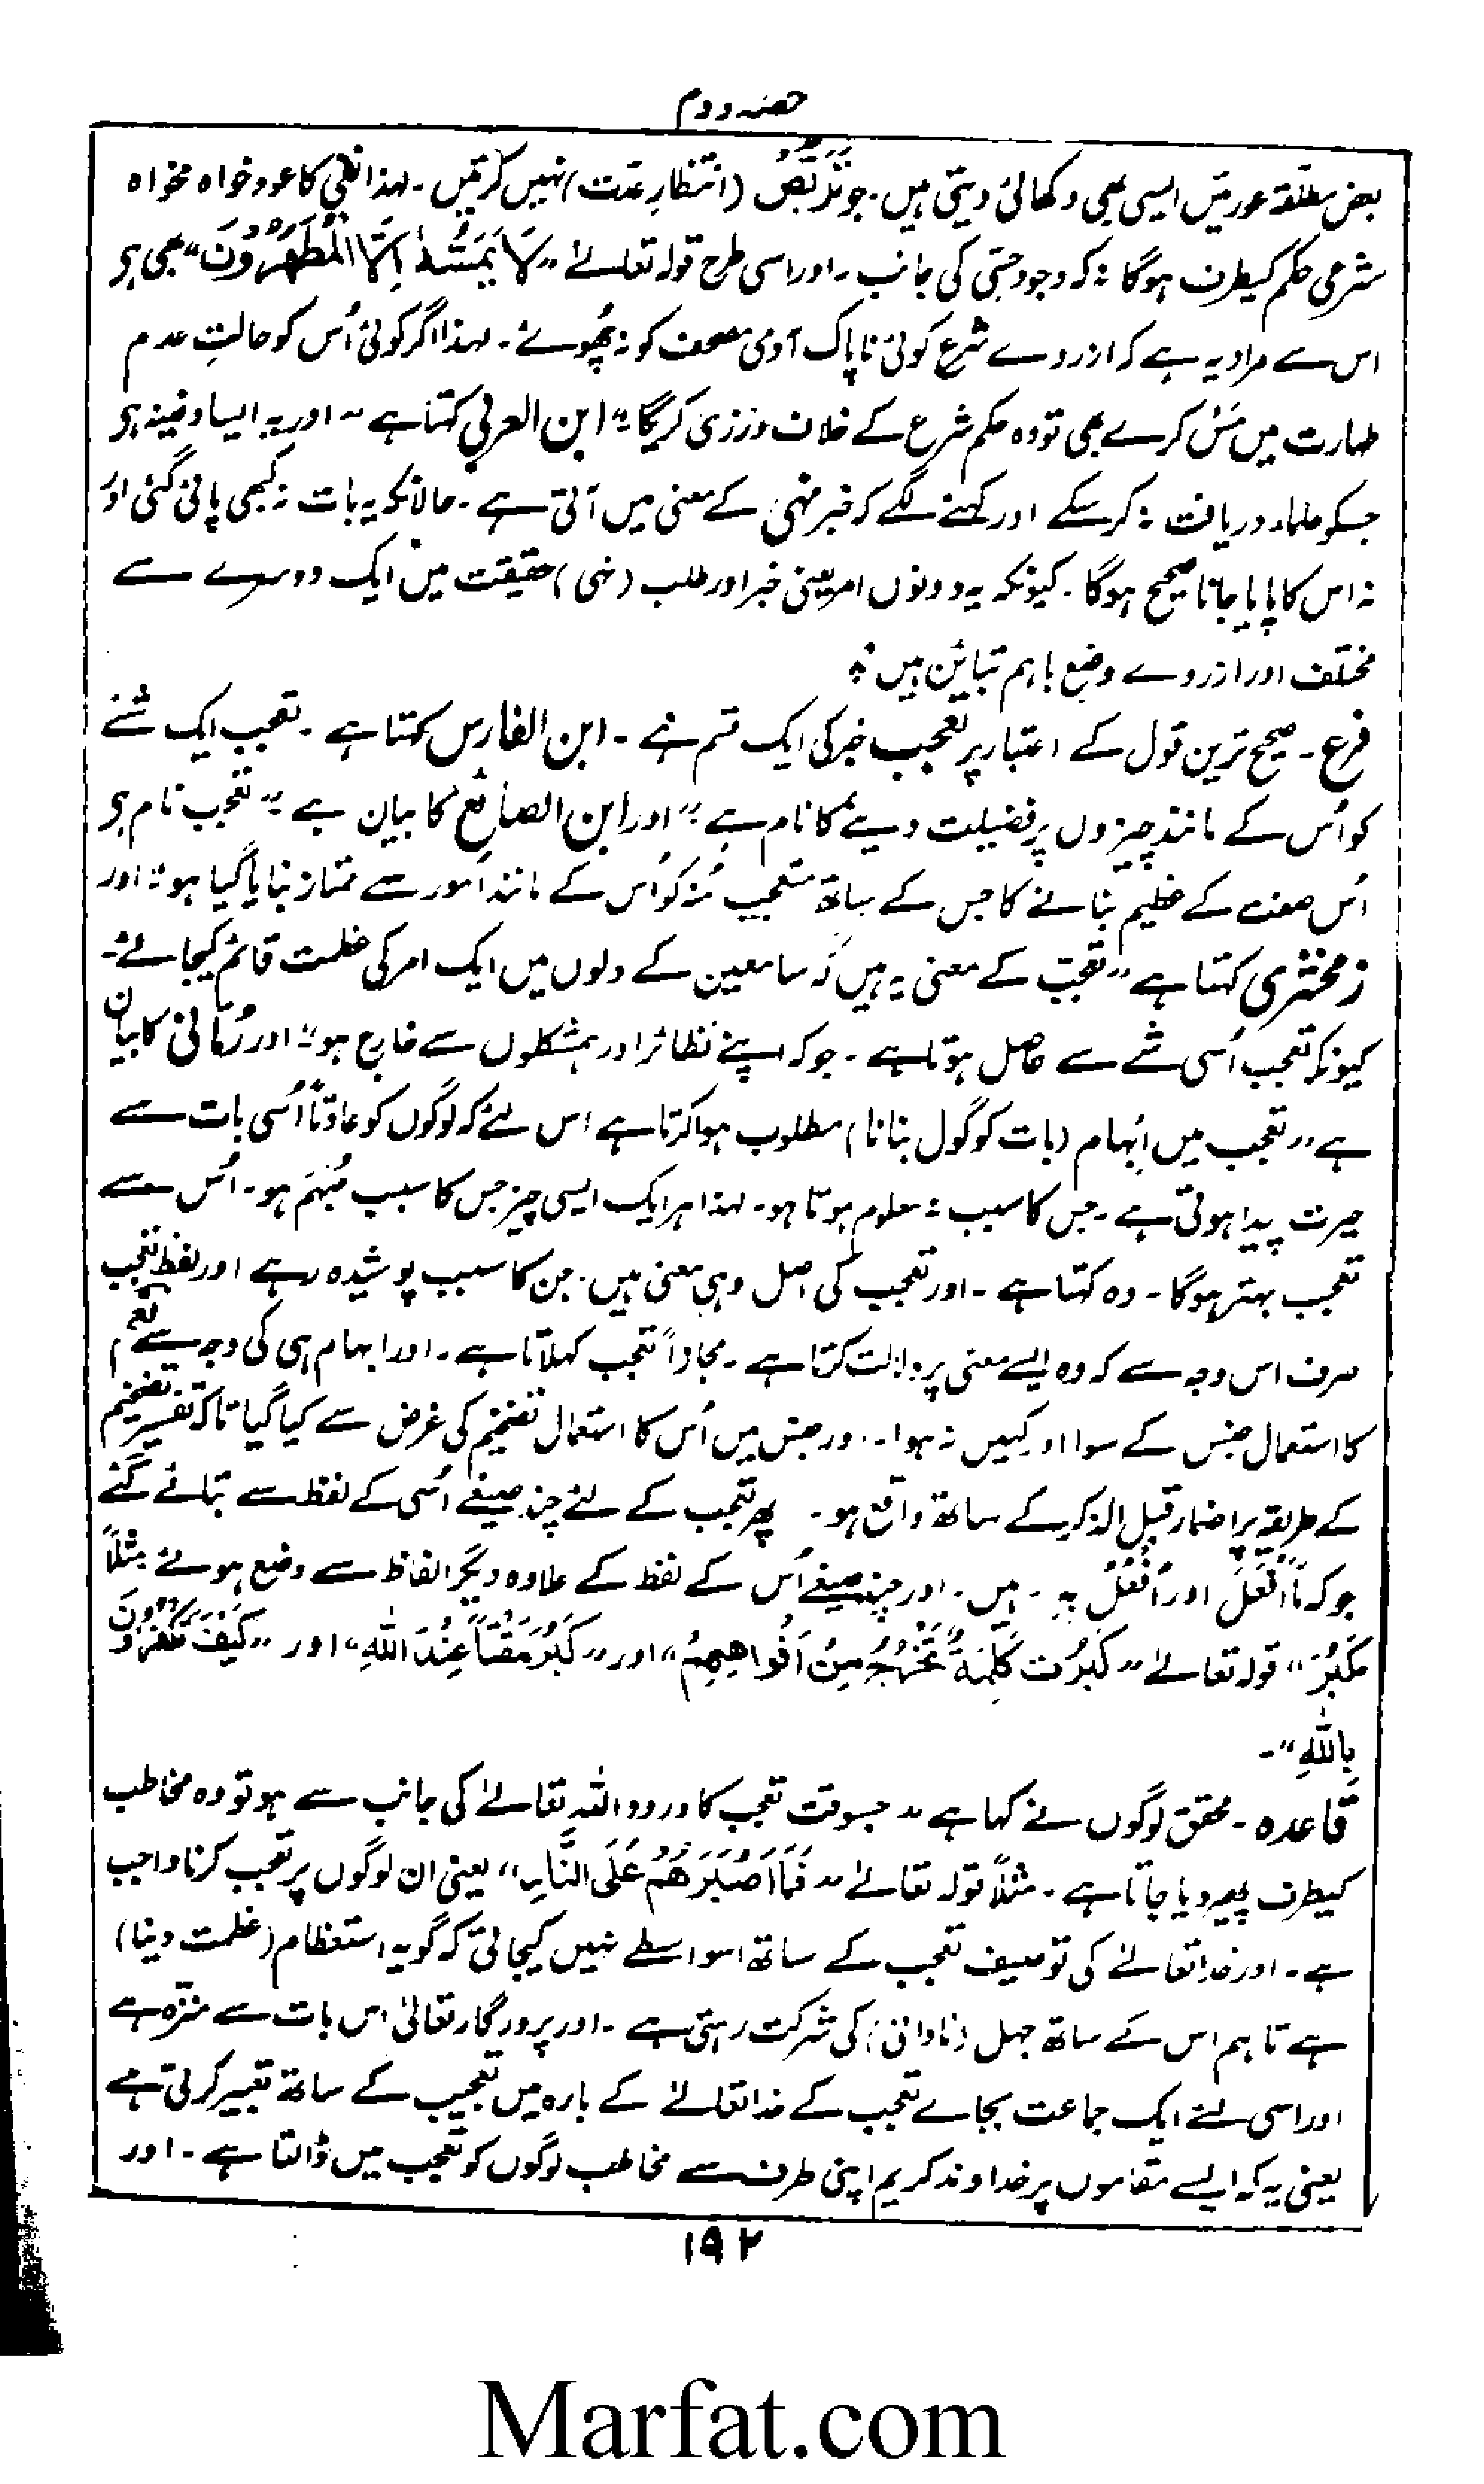 حصہ دوم
بعض مطلّقہ عورتیں ایسی بھی دکھائی دیتی ہیں۔ جو تَرَبُّصْ (انتظارِ عدّت) نہیں کرتیں۔ لہذا نفی کا عود خواہ مخواہ
شرعی حکم کیطرف ہوگا نہ کہ وجود حِسّی کی جانب۔ اور اسی طرح قولہ تعالےٰ ”لَا يَمَسُّهٗ اِلَّا الْمُطَهَّرُوْنَ“ بھی ہی
اس سے مراد یہ ہے کہ ازروے شرع کوئی ناپاک آدمی مصحف کو نہ چُھوئے۔ لہذا اگر کوئی اُس کو حالتِ عدم
طہارت میں مَسْ کرے بھی تو وہ حکم شرع کے خلاف ورزی کریگا“ ابن العربی کہتا ہے ”اور یہ ایسا دفینہ ہی
جسکو علماء دریافت نہ کرسکے اور کہنے لگے کہ خبر نہی کے معنی میں آتی ہے۔ حالانکہ یہ بات نہ کبھی پائی گئی اور
نہ اس کا پایا جانا صحیح ہوگا۔ کیونکہ یہ دونوں امر یعنی خبر اور طلب (نہی) حقیقت میں ایک دوسرے سے
مختلف اور ازروے وضع باہم تبایُن ہیں“
فرع۔ صحیح ترین قول کے اعتبار پر تعجب خبر کی ایک قسم ہے۔ ابن الفارس کہتا ہے۔ تعجب ایک شئے
کو اُس کے مانند چیزوں پر فضیلت دینے کا نام ہے“ اور ابن الصائغ کا بیان ہے ”تعجب نام ہی
اُس صفت کے عظیم بنانے کا جس کے ساتھ متعجب مِنہ کو اُس کے مانند اُمور سے ممتاز بنایا گیا ہو“ اور
زمخشری کہتا ہے ”تعجّب کے معنی یہ ہیں کہ سامعین کے دلوں میں ایک امر کی عظمت قائم کیجائے۔
کیونکہ تعجب اُسی شے سے حاصل ہوتا ہے۔ جو کہ اپنے نظائر اور ہمشکلوں سے خارج ہو“ اور رُمّانی کا بیان
ہے ”تعجب میں اِبہام (بات کو گول بنانا) مطلوب ہوا کرتا ہے اس لئے کہ لوگوں کو عادتاً اُسی بات سے
حیرت پیدا ہوتی ہے۔ جس کا سبب نہ معلوم ہوتا ہو۔ لہذا ہر ایک ایسی چیز جس کا سبب مُبْہَم ہو۔ اُس سے
تعجب بہتر ہوگا۔ وہ کہتا ہے۔ اور تعجب کی اصل وہی معنی ہیں۔ جن کا سبب پوشیدہ رہے اور لفظ تعجب
صرف اس وجہ سے کہ وہ ایسے معنی پر دلالت کرتا ہے۔ مجازاً تعجب کہلاتا ہے۔ اور ابہام ہی کی وجہ سے نِعْمَ
کا استعمال جنس کے سوا اور کہیں نہ ہوا۔ اور جنس میں اُس کا استعمال تفخیم کی غرض سے کیا گیا تاکہ تفسیر تفخیم
کے طریقہ پر اضمار قبل الذکر کے ساتھ واقع ہو۔ پھر تعجب کے لئے چند صیغے اُسی کے لفظ سے بتائے گئے
جو کہ مَا اَفْعَلَ اور اَفْعِلْ بِہٖ۔ ہیں۔ اور چند صیغے اُس کے لفظ کے علاوہ دیگر الفاظ سے وضع ہوئے مثلاً
كَبُرَ“ قولہ تعالےٰ ”كَبُرَتْ كَلِمَةً تَخْرُجُ مِنْ اَفْوَاهِهِمْ“ اور ”كَبُرَ مَقْتًا عِنْدَ اللّٰهِ“ اور ”كَيْفَ تَكْفُرُوْنَ
بِاللّٰهِ“۔
قاعدہ۔ محقق لوگوں نے کہا ہے ”جسوقت تعجب کا ورود اللہ تعالےٰ کی جانب سے ہو تو وہ مخاطب
کیطرف پھیر دیا جاتا ہے۔ مثلاً قولہ تعالےٰ ”فَمَا اَصْبَرَهُمْ عَلَى النَّارِ“ یعنی ان لوگوں پر تعجب کرنا واجب
ہے۔ اور خدا تعالےٰ کی توصیف تعجب کے ساتھ اسواسطے نہیں کیجاتی کہ گو یہ استعظام (عظمت دینا)
ہے تاہم اس کے ساتھ جہل (نادانی) کی شرکت رہتی ہے۔ اور پروردگار تعالیٰ اس بات سے منزّہ ہے
اور اسی لئے ایک جماعت بجاے تعجب کے خدا تعالےٰ کے بارہ میں تعجیب کے ساتھ تعبیر کرتی ہے
یعنی یہ کہ ایسے مقاموں پر خداوند کریم اپنی طرف سے مخاطب لوگوں کو تعجب میں ڈالتا ہے۔ اور
۱۹۲
Marfat.com